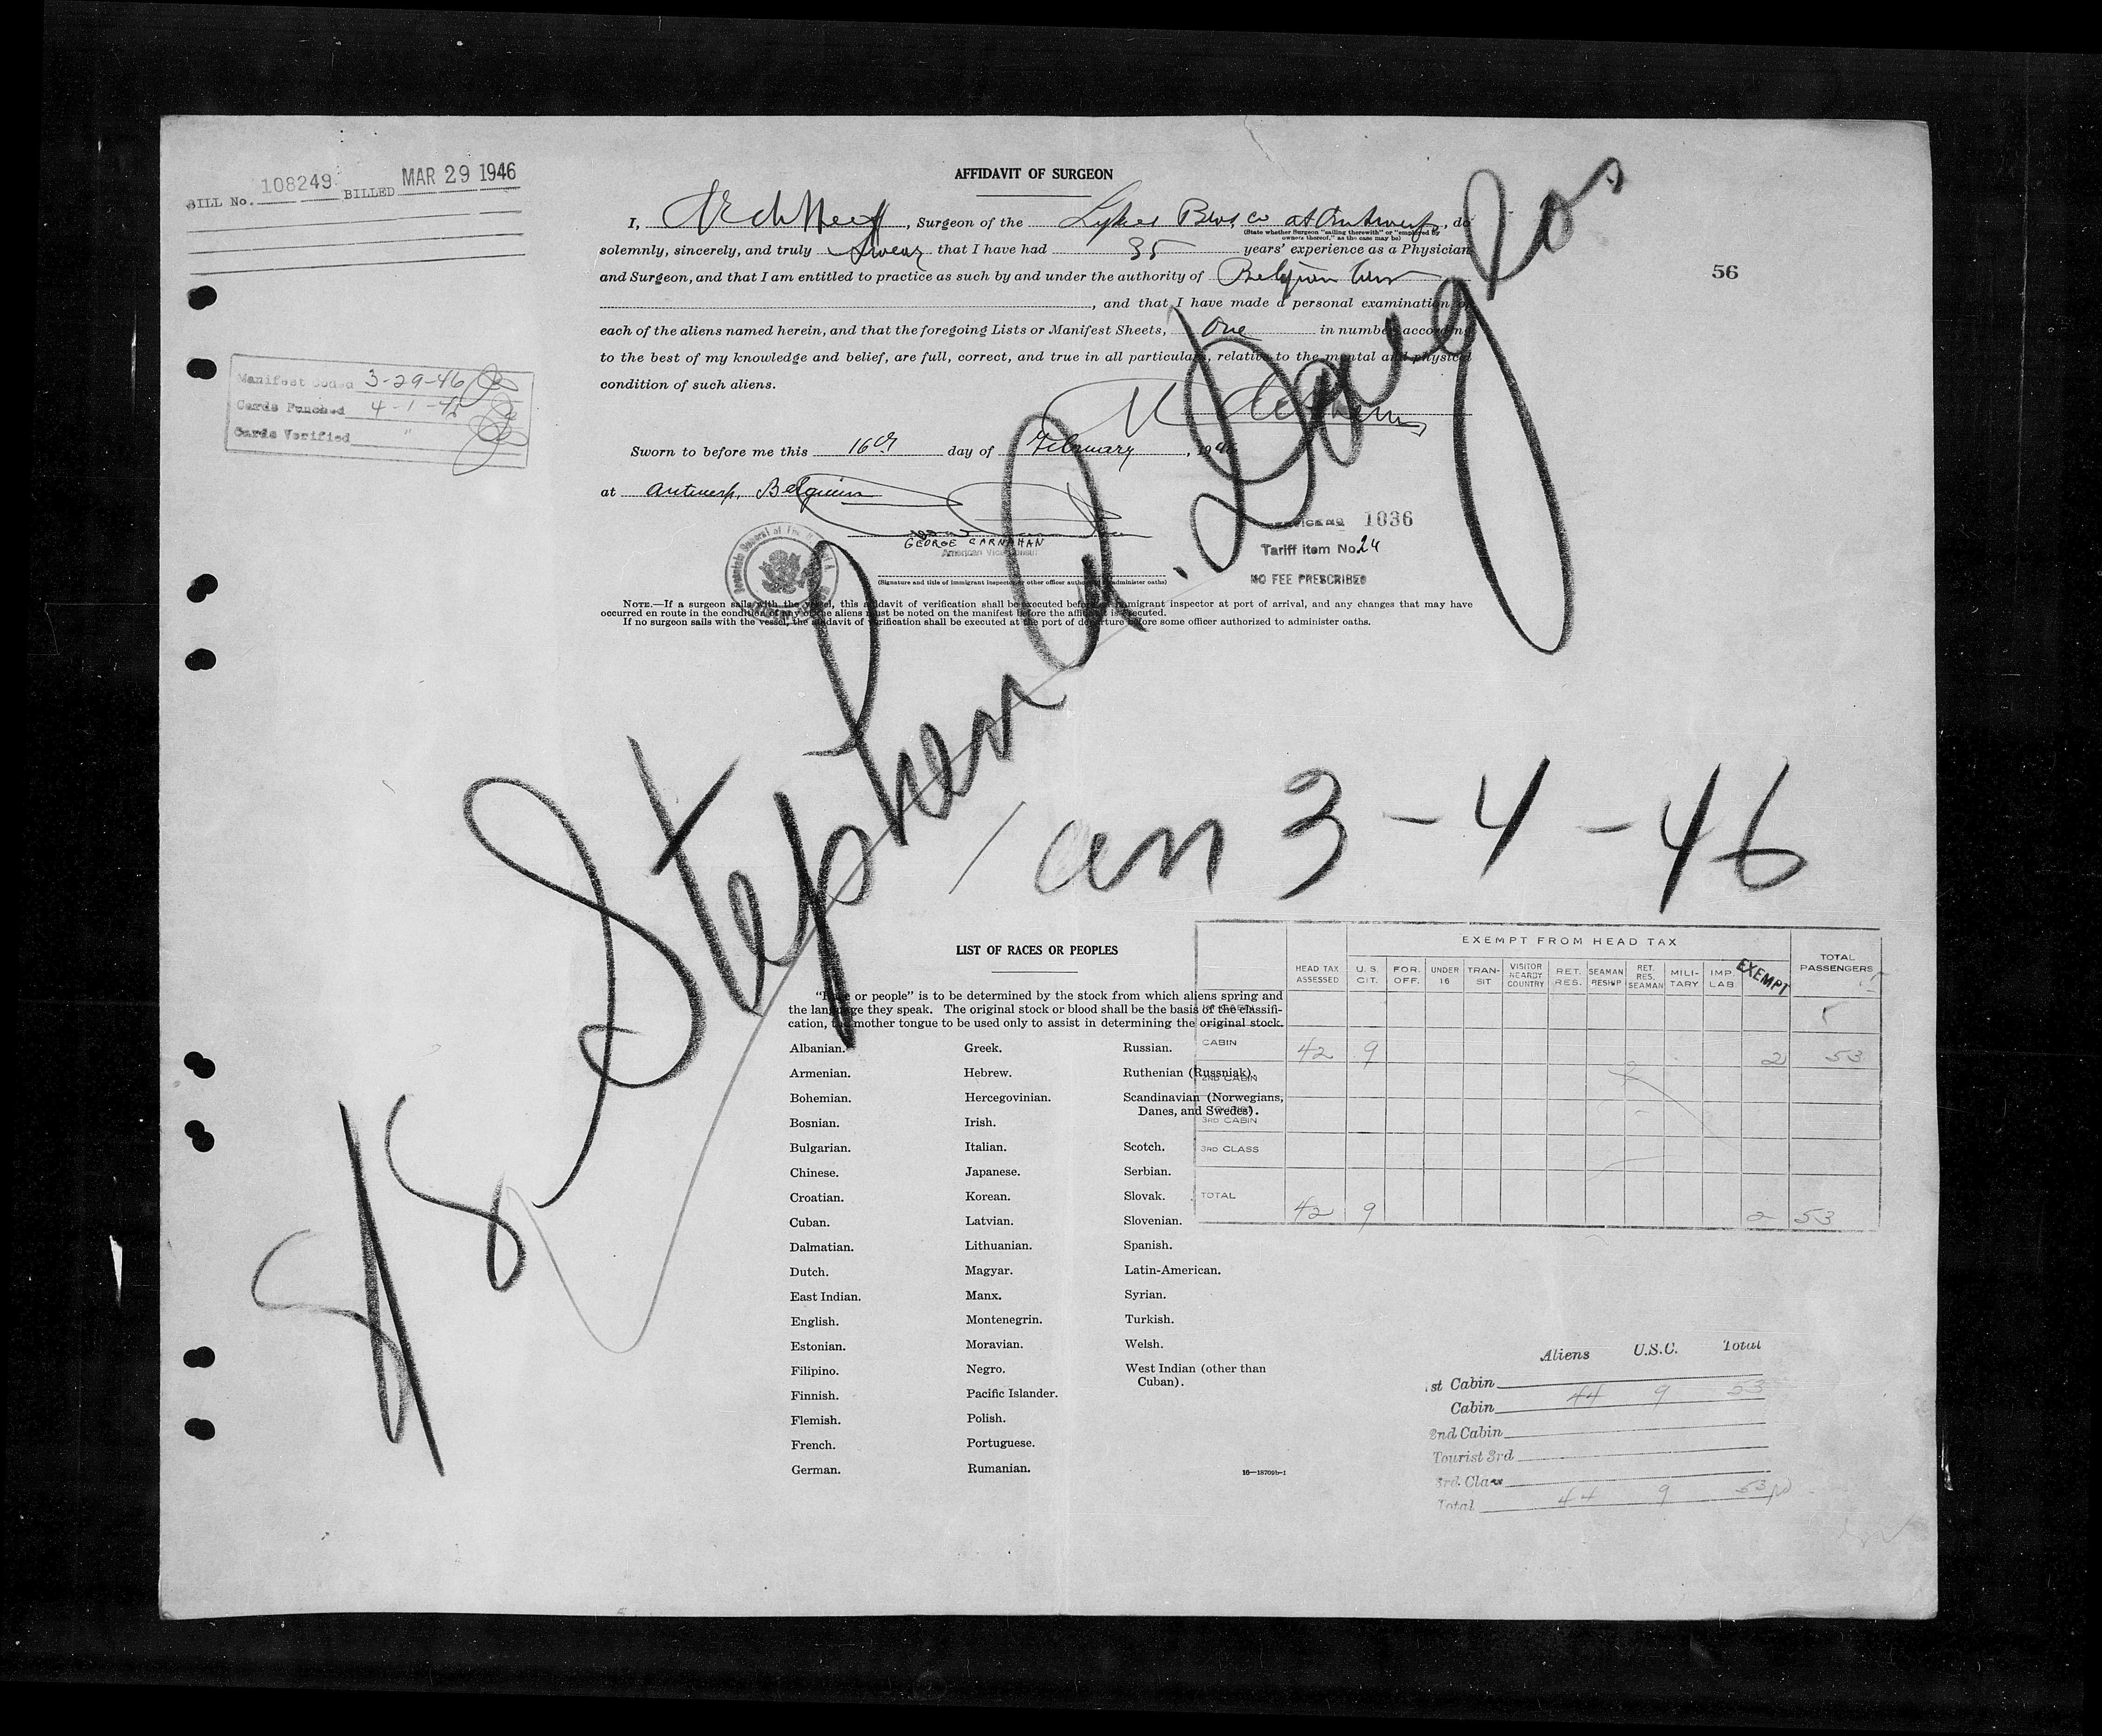 BILL No. 108249 BILLED MAR 29 1946
AFFIDAVIT OF SURGEON
I, , Surgeon of the Lykes Bros, Co at Antwerp, do
(State whether Surgeon "sailing therewith" or "employed by
owners thereof," as the case may be)
solemnly, sincerely, and truly swear that I have had 35 years' experience as a Physician
and Surgeon, and that I am entitled to practice as such by and under the authority of Belgian
, and that I have made a personal examination of
each of the aliens named herein, and that the foregoing Lists or Manifest Sheets, One in number, according
to the best of my knowledge and belief, are full, correct, and true in all particulars, relative to the mental and physical
condition of such aliens.
56
Manifest Coded 3-29-46
Cards Punched 4-1-46
Cards Verified "
Sworn to before me this 16th day of February, 1946
at Antwerp, Belgium
GEORGE CARNAHAN
American Vice Consul
(Signature and title of immigrant inspector or other officer authorized to administer oaths)
1036
Tariff item No. 24
NO FEE PRESCRIBED
NOTE.—If a surgeon sails with the vessel, this affidavit of verification shall be executed before an immigrant inspector at port of arrival, and any changes that may have
occurred en route in the condition of any of the aliens must be noted on the manifest before the affidavit is executed.
If no surgeon sails with the vessel, the affidavit of verification shall be executed at the port of departure before some officer authorized to administer oaths.
SS Stephen A. Douglas
arr 3-4-46
LIST OF RACES OR PEOPLES
"Race or people" is to be determined by the stock from which aliens spring and
the language they speak. The original stock or blood shall be the basis of the classifi-
cation, the mother tongue to be used only to assist in determining the original stock.
Albanian.
Armenian.
Bohemian.
Bosnian.
Bulgarian.
Chinese.
Croatian.
Cuban.
Dalmatian.
Dutch.
East Indian.
English.
Estonian.
Filipino.
Finnish.
Flemish.
French.
German.
Greek.
Hebrew.
Hercegovinian.
Irish.
Italian.
Japanese.
Korean.
Latvian.
Lithuanian.
Magyar.
Manx.
Montenegrin.
Moravian.
Negro.
Pacific Islander.
Polish.
Portuguese.
Rumanian.
Russian.
Ruthenian (Russniak).
Scandinavian (Norwegians,
Danes, and Swedes).
Scotch.
Serbian.
Slovak.
Slovenian.
Spanish.
Latin-American.
Syrian.
Turkish.
Welsh.
West Indian (other than
Cuban).
16—18709b-1
EXEMPT FROM HEAD TAX
HEAD TAX ASSESSED U.S. CIT. FOR. OFF. UNDER 16 TRAN-SIT VISITOR NEARBY COUNTRY RET. RES. SEAMAN RESHIP RET. RES. SEAMAN MILI-TARY IMP. LAB EXEMPT TOTAL PASSENGERS
1ST CABIN
CABIN 42 9 2 53
2ND CABIN
3RD CABIN
3RD CLASS
TOTAL 42 9 2 53
Aliens U.S.C. Total
1st Cabin
Cabin 44 9 53
2nd Cabin
Tourist 3rd
3rd Class
Total 44 9 53